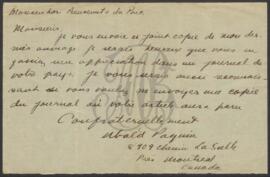 Monsieur Benvenuto da Riva
Monsieur,
je vous envoie ci joint copie de mon der-
nier ouvrage. Je serais heureux que vous en
fassiez une appréciation dans un journal de
votre pays. Je vous serais aussi reconnais-
sant de vous vouloir m'envoyer une copie
du journal où votre article aura paru
Confraternellement
Ubald Paquin
8109 chemin La Salle
Près Montreal
Canada